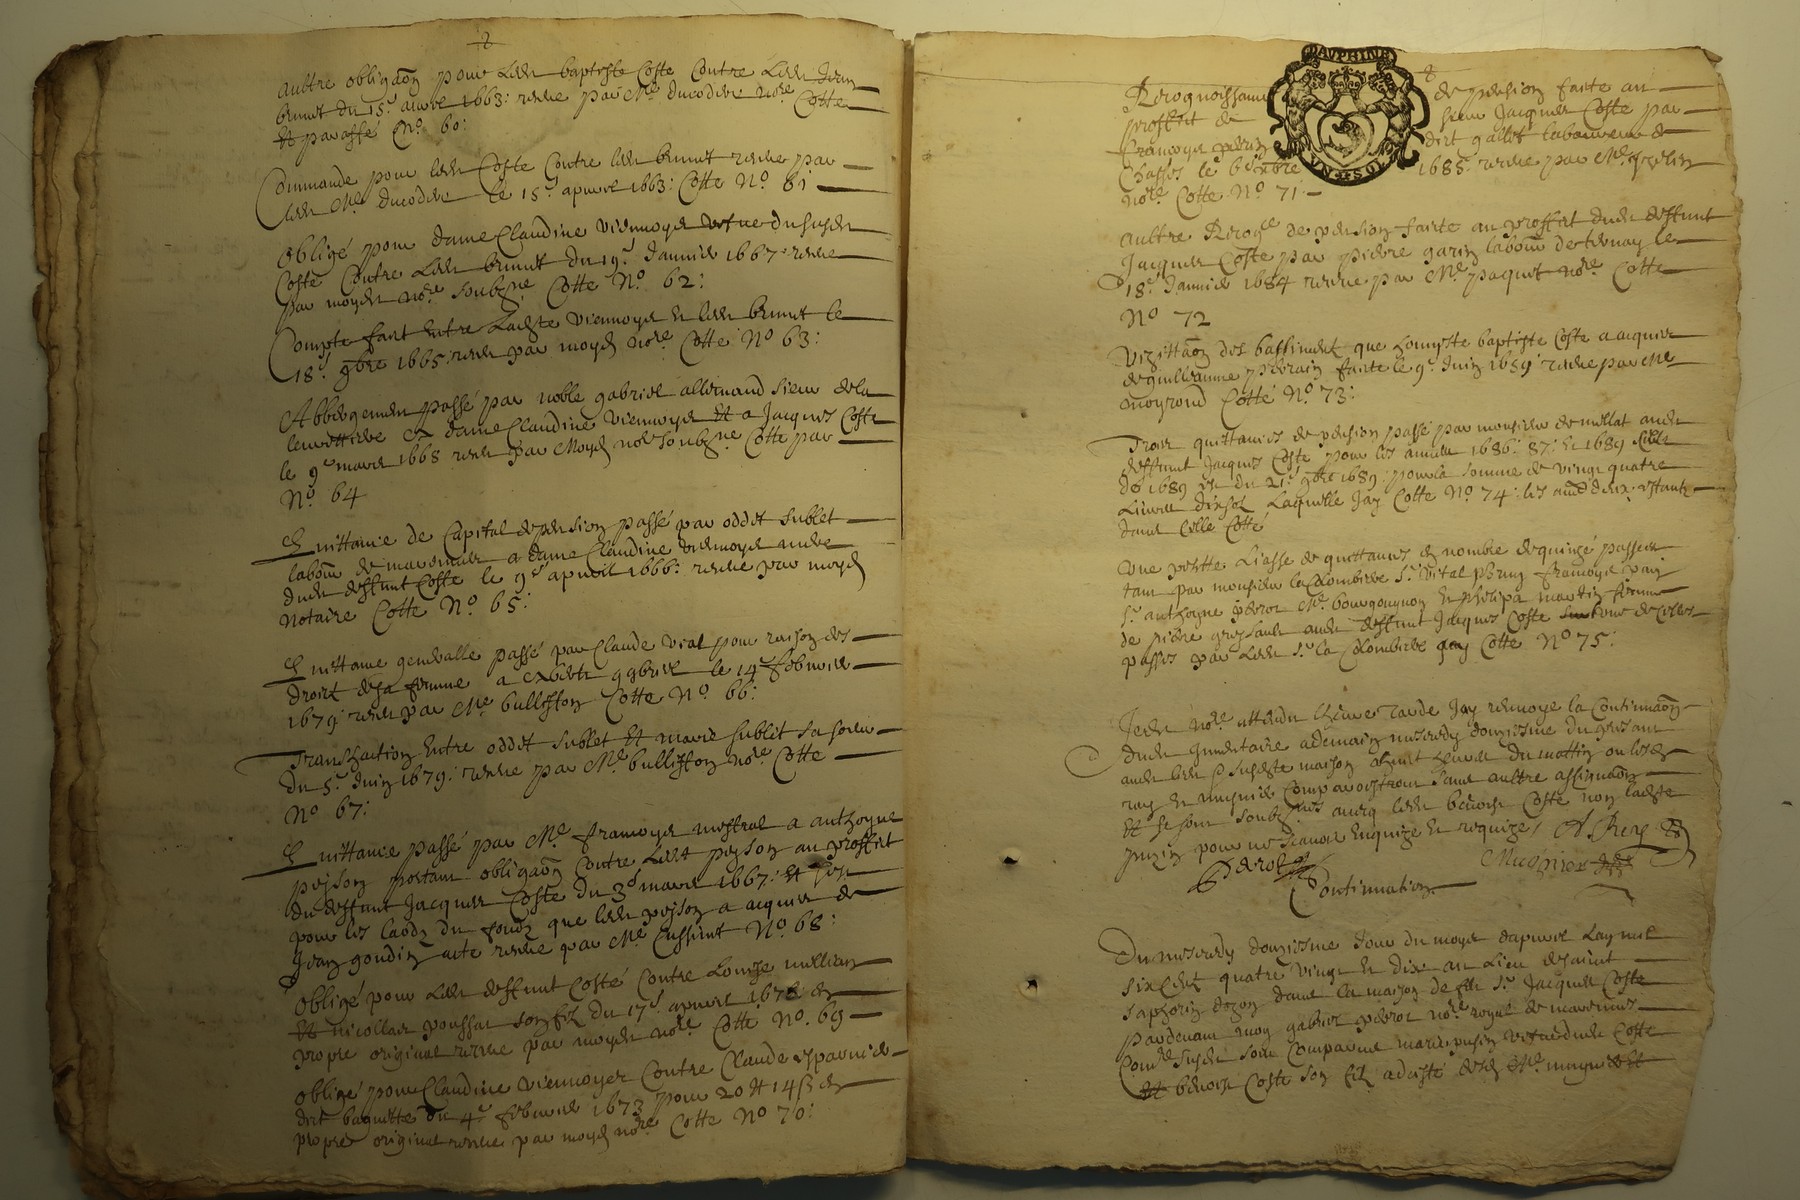 aultre obligaõn pour led baptiste Coste Contre led Jean
brunet du 15e apvre 1663: receue par Me ducoderc nore Cotte
Et parassé No. 60:
Commande pour led Coste Contre led brunet receue par
led Me ducoderc le 15e apvril 1663: Cotte No. 61
Obligé pour dame Claudine Viennoyse vefve du susdt
Coste Contre led brunet du 19e Janvier 1667 receue
par moyd nore soubzne Cotte No. 62:
Compte fait Entre Ladte Viennoyse et led brunet le
18e 9bre 1665: receu par moyd nore Cotte No 63:
Abbergement passé par noble gabriel allemand sieur de la
a dame Claudine Viennoyse Et a Jacques Coste
le 9e mars 1668 receu par Moyd nore soubzne Cotte par
No. 64
Quittance de Capital de pension passé par oddet sublet
labour de a dame Claudine viennoyse vefve
dud deffunt Coste le 9e apvril 1666: receue par moyd
notaire Cotte No. 65:
Quittance generalle passé par Claude vial pour raison des
droit de sa femme a gabriel le 14e febvrier
1679: receu par Me bullosson Cotte No. 66:
Transsaction Entre oddet sublet Et marie sublet sa soeur
du 5e Juin 1679: receue par Me bullosson nore Cotte
No 67:
Quittance passé par Me francoys mestral a anthoyne
peyson portant obligaõn Contre led peyson au proffit
du deffunt Jacques Coste du 3e mars 1667: Et
pour les laodz du fondz que led peyson a acquis de
Jean goudin acte receue par Me No. 68:
Obligé pour led deffunt Coste Contre Louyse
Et nicollas poussat son filz du 17e apvril 1678 en
propre original receue par moyd nore Cotte No. 69
obligé pour Claudine Viennoyse Contre Claude
dit baquette du 4e febvrier 1673 pour 20 tt 14 ß en
propre original receue par moyd nore Cotte No 70:
DAUPHINE
UN SOL
Recognoissance de pension faite au
proffit de sieur Jacques Coste par
francoys perrin dit gallet laboureur de
Chasses le 6e xbre 1685: receue par Me
nore Cotte No 71
aultre Recogce de pension faite au proffit dud deffunt
Jacques Coste par pierre garin labour de ternay le
18e Janvier 1684 receue par Me paquet nore Cotte
No 72
Vizittaõn des bastiment que honneste baptiste Coste a acquis
de guilleaume perrain faite le 9e Juin 1659 receue par Me
moyroud Cotté No. 73:
Trois quittances de pension passé par monsieur de millat aud
deffunt Jacques Coste pour les année 1686: 87: et 1689 celle
de 1689 est du 21e 9bre 1689: pour la somme de vingt quatre
Livres dix sol Laquelle Jay Cotté No. 74: les aud deux restant
dans celle Cotté
Une petitte Liasse de quittances en nombre de quinze passees
tant par monsieur la Colombiere Sr Vital francoys
Sr anthoyne perrot Me bourgougnon et phelipa martin femme
de pierre aud deffunt Jacques Coste Sur lune de celles
passes par led Sr la Colombiere jay Cotte No 75:
Jedt nore attendu lheure tarde Jay renvoyé la Continuaõn
dud Inventaire a demain mecredy douziesme du presant
aud lieu et susdte maison a huit heures du mattin ou lesd
rey et mugnier Comparoistront sans aultre assignaõn
Et se sont soubznes aveq led benoist Coste non ladte
puzin pour ne scavoir Enquize et requize / A. Rey
Perrot Mugnier
Continuation
Du mecredy douziesme Jour du moys dapvril Lan mil
six Cent quatre vingt et dix au Lieu de saint
saphorin dozon dans la maison de feu Sr Jacques Coste
par devant moy gabriel perrot nore royal de marennes
Comre susdt sont Comparu marie puzin vefve dud Coste
Et benoist Coste son filz adcisté desd Me mugnier Et